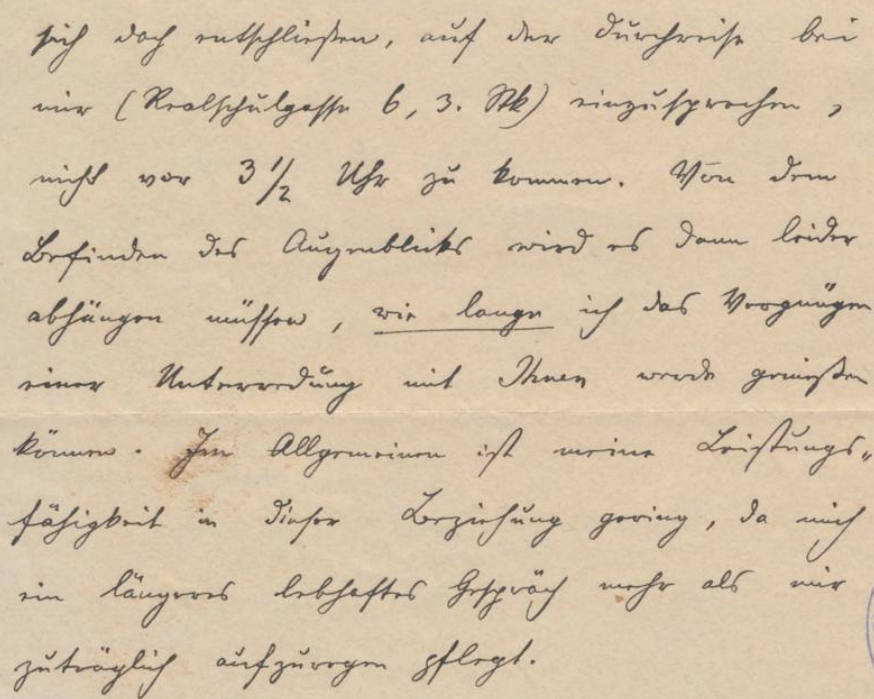 sich doch entschließen, auf der Durchreise bei
mir (Realschulgasse 6, 3. Stk) einzusprechen,
nicht vor 3 1/2 Uhr zu kommen. Von dem
Befinden des Augenblicks wird es dann leider
abhängen müssen, wie lange ich das Vergnügen
einer Unterredung mit Ihnen werde genießen
können. Im Allgemeinen ist meine Leistungs-
fähigkeit in dieser Beziehung gering, da mich
ein längeres lebhaftes Gespräch mehr als mir
zuträglich aufzuregen pflegt.